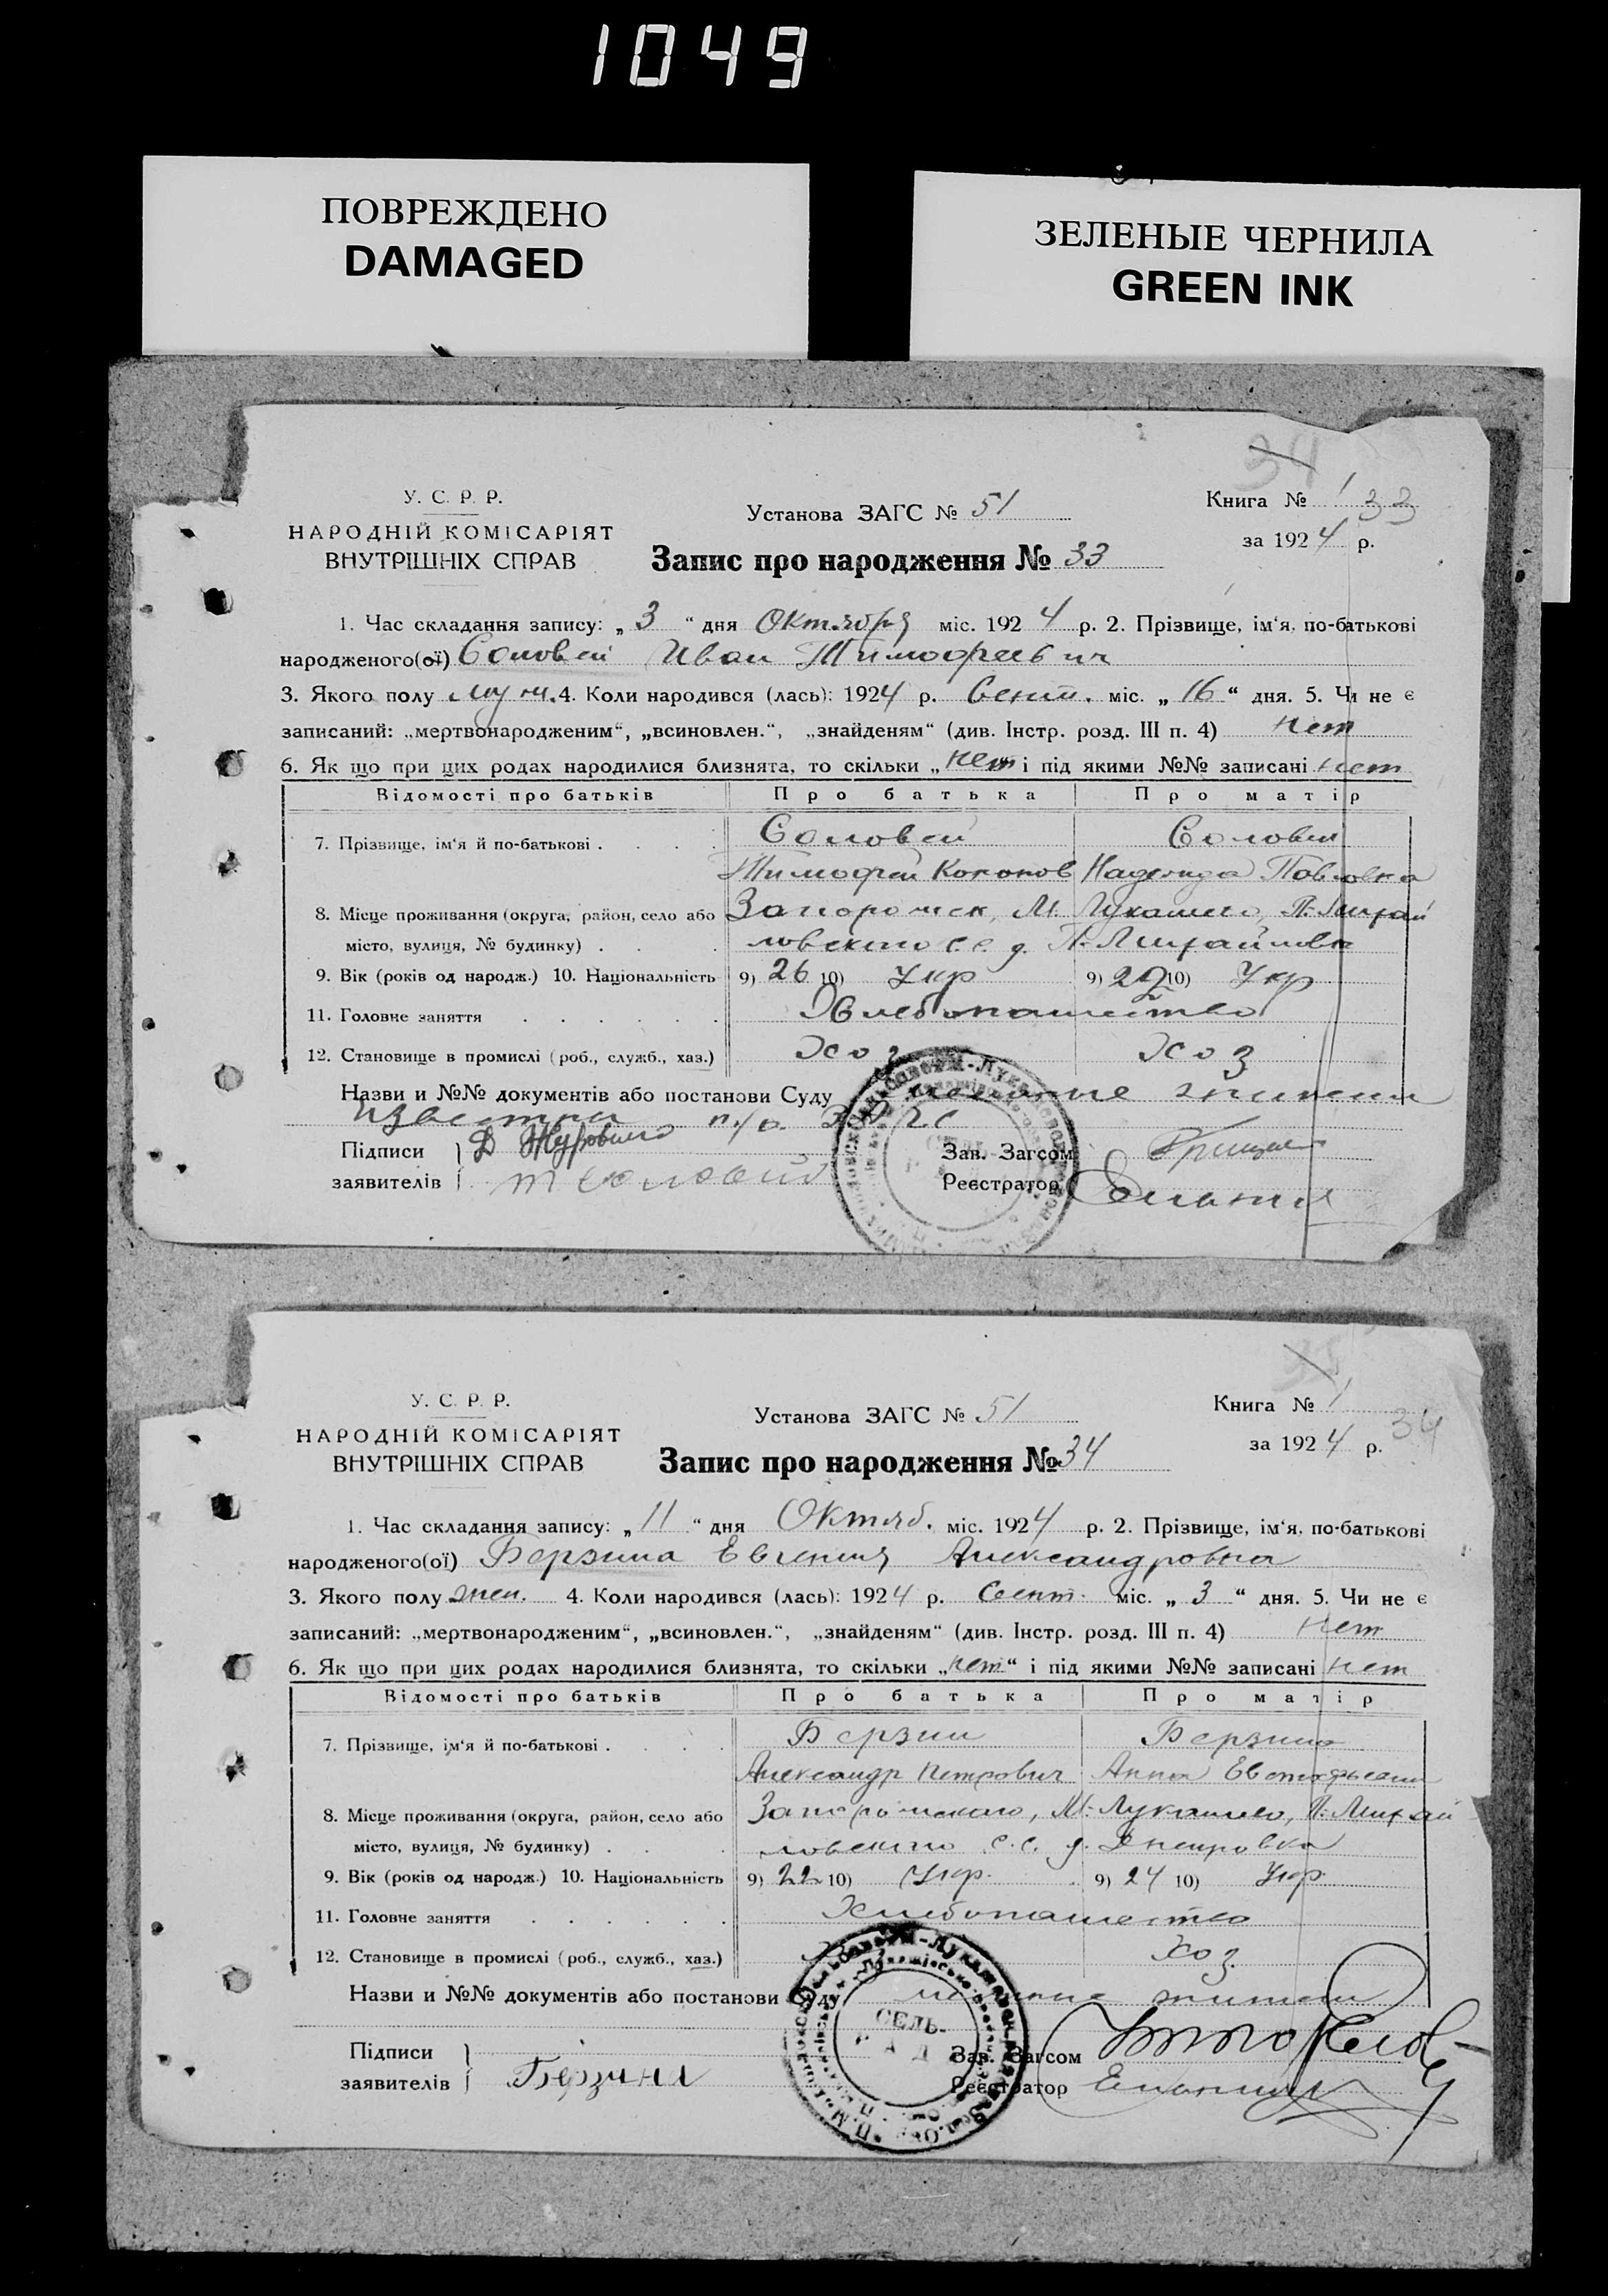 1049
ПОВРЕЖДЕНО
DAMAGED
ЗЕЛЕНЫЕ ЧЕРНИЛА
GREEN INK
34
У. С. Р. Р.
НАРОДНІЙ КОМІСАРІЯТ
ВНУТРІШНІХ СПРАВ
Установа ЗАГС № 51
Запис про народження № 33
Книга № 1 33
за 1924 р.
1. Час складання запису: „3“ дня Октября міс. 1924 р. 2. Прізвище, ім‘я, по-батькові
народженого(ої) Соловей Иван Тимофеевич
3. Якого полу муж. 4. Коли народився (лась): 1924 р. Сент. міс. „16“ дня. 5. Чи не є
записаний: „мертвонародженим“, „всиновлен.“, „знайденям“ (див. Інстр. розд. III п. 4) нет
6. Як що при цих родах народилися близнята, то скільки „нет“ і під якими №№ записані нет
Відомості про батьків Про батька Про матір
7. Прізвище, ім‘я й по-батькові . . . . Соловей Соловей
Тимофей Кононов Надежда Павловна
8. Місце проживання (округа, район, село або Запорожск, М. Лукашево, П-Михай
місто, вулиця, № будинку) . . . ловского с.с. д. П-Михайловка
9. Вік (років од народж.) 10. Національність 9) 26 10) Укр 9) 22 10) Укр
11. Головне заняття . . . . . . Хлебопашество
12. Становище в промислі (роб., служб., хаз.) Хоз Хоз
Назви и №№ документів або постанови Суду
известны ЗАГС
Підписи
заявителів
Зав. Загсом
Реєстратор
У. С. Р. Р.
НАРОДНІЙ КОМІСАРІЯТ
ВНУТРІШНІХ СПРАВ
Установа ЗАГС № 51
Запис про народження № 34
Книга № 1
34
за 1924 р.
1. Час складання запису: „11“ дня Октяб. міс. 1924 р. 2. Прізвище, ім‘я, по-батькові
народженого(ої) Берзина Евгения Александровна
3. Якого полу жен. 4. Коли народився (лась): 1924 р. Сент. міс. „3“ дня. 5. Чи не є
записаний: „мертвонародженим“, „всиновлен.“, „знайденям“ (див. Інстр. розд. III п. 4) нет
6. Як що при цих родах народилися близнята, то скільки „нет“ і під якими №№ записані нет
Відомості про батьків Про батька Про матір
7. Прізвище, ім‘я й по-батькові . . . . Берзин Берзина
Александр Петрович Анна
8. Місце проживання (округа, район, село або Запорожского, М-Лукашево, П-Михай
місто, вулиця, № будинку) . . . ловского с.с. д. Днепровка
9. Вік (років од народж.) 10. Національність 9) 22 10) Укр. 9) 24 10) Укр.
11. Головне заняття . . . . . . Хлебопашество
12. Становище в промислі (роб., служб., хаз.) Хоз.
Назви и №№ документів або постанови Суду жители
СЕЛЬ-
РАД
Підписи
заявителів Берзина
Зав. Загсом
Реєстратор